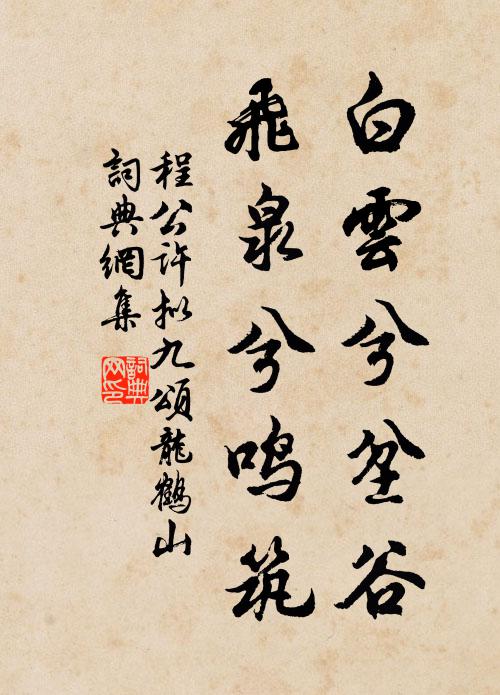 白雲兮坌谷
飛泉兮鳴筑
程公許拟九頌龍鶴山
詞典網集
詞典網印